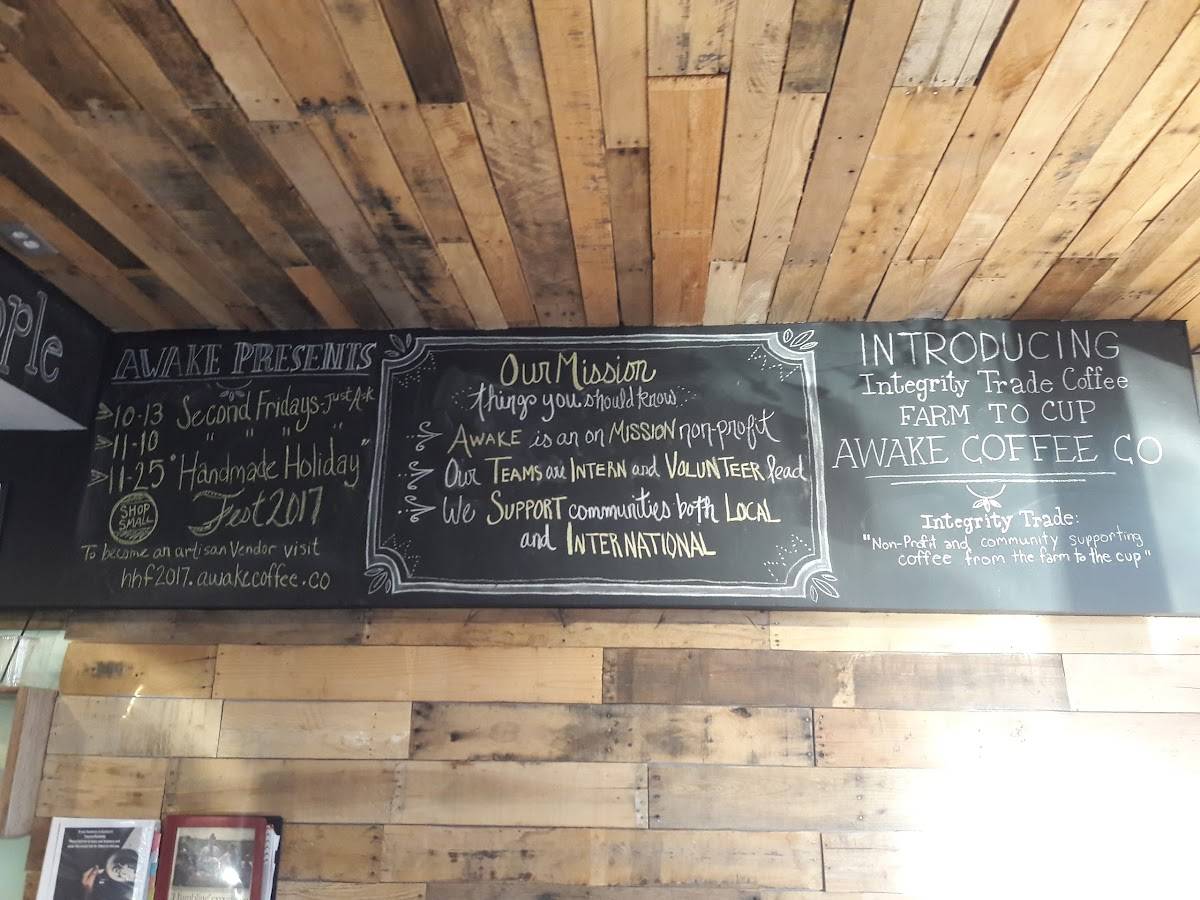 ople
AWAKE PRESENTS
10-13 Second Fridays-Just Ask
11-10 " " " "
11-25 "Handmade Holiday"
Fest 2017
SHOP
SMALL
To become an artisan Vendor visit
hhf2017.awakecoffee.co
Our Mission
things you should know
AWAKE is an on MISSION non-profit
Our TEAMS are INTERN and VOLUNTEER lead
We SUPPORT communities both LOCAL
and INTERNATIONAL
INTRODUCING
Integrity Trade Coffee
FARM TO CUP
AWAKE COFFEE CO
Integrity Trade:
"Non-Profit and community supporting
coffee from the farm to the cup"